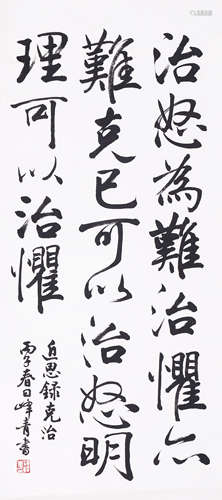 治怒為難治懼亦
難克己可以治怒明
理可以治懼
近思錄克治
丙子春日峰青書